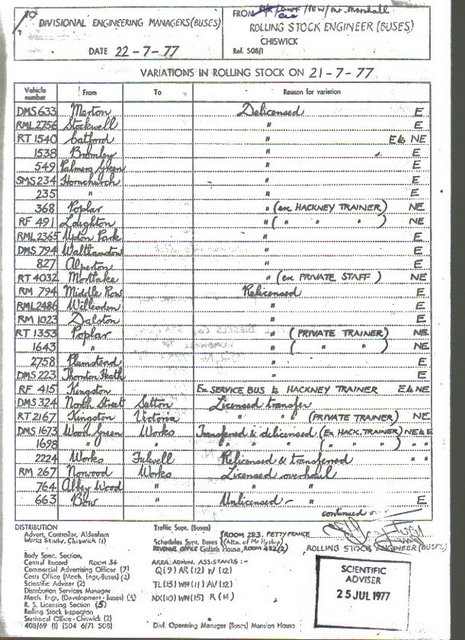 TO DIVISIONAL ENGINEERING MANAGERS (BUSES)
FROM
ROLLING STOCK ENGINEER (BUSES)
CHISWICK
DATE 22-7-77
Ref. 508/1
VARIATIONS IN ROLLING STOCK ON 21-7-77
Vehicle number From To Reason for variation
DMS 633 Merton Delicensed E
RML 2756 Stockwell " E
RT 1540 Catford " E to NE
1538 Bromley " E
549 Palmers Green " E
SMS 234 Hornchurch " E
235 " " E
368 Poplar " (ex HACKNEY TRAINER) NE
RF 491 Loughton " ( " " " ) NE
RML 2365 Upton Park " E
DMS 794 Walthamstow " E
827 Alperton " E
RT 4032 Mortlake " (ex PRIVATE STAFF) NE
RM 794 Middle Row Relicensed E
RML 2486 Willesden " E
RM 1023 Dalston " E
RT 1353 Poplar " (PRIVATE TRAINER) NE
1643 " " ( " " ) NE
2758 Plumstead " E
DMS 223 Thornton Heath " E
RF 415 Kingston Ex SERVICE BUS to HACKNEY TRAINER E to NE
DMS 324 North Street Sutton Licensed transfer E
RT 2167 Kingston Victoria " " (PRIVATE TRAINER) NE
DMS 1673 Wood Green Works Transferred & delicensed (Ex HACK. TRAINER) NE & E
1698 " " " " " " " " "
2224 Works Fulwell Relicensed & transferred " "
RM 267 Norwood Works Licensed overhaul E
764 Abbey Wood " " " E
663 Bow " Unlicensed - " E
continued
DISTRIBUTION
Advert. Controller, Aldenham
Works Study, Chiswick (1)
Body Spec. Section,
Central Record Room 36
Commercial Advertising Officer (7)
Costs Office (Mech. Engr. Buses) (2)
Scientific Adviser (2)
Distribution Services Manager
Mech. Engr. (Development - Buses) (3)
R. S. Licensing Section (5)
Rolling Stock Inspection
Statistical Office - Chiswick (2)
408/69 (1) (504 6/71 508)
Traffic Supt. (Buses)
(ROOM 283, PETTY FRANCE
Schedules Supt. Buses
REVENUE OFFICE Griffith House, ROOM 432 (2)
AREA ADMN. ASSISTANTS:-
Q (9) AR (12) W (12)
TL (15) WH (11) AV (12)
NX (10) WN (15) R (14)
Divl. Operating Manager (Buses) Mansion House
ROLLING STOCK ENGINEER (BUSES)
SCIENTIFIC
ADVISER
25 JUL 1977